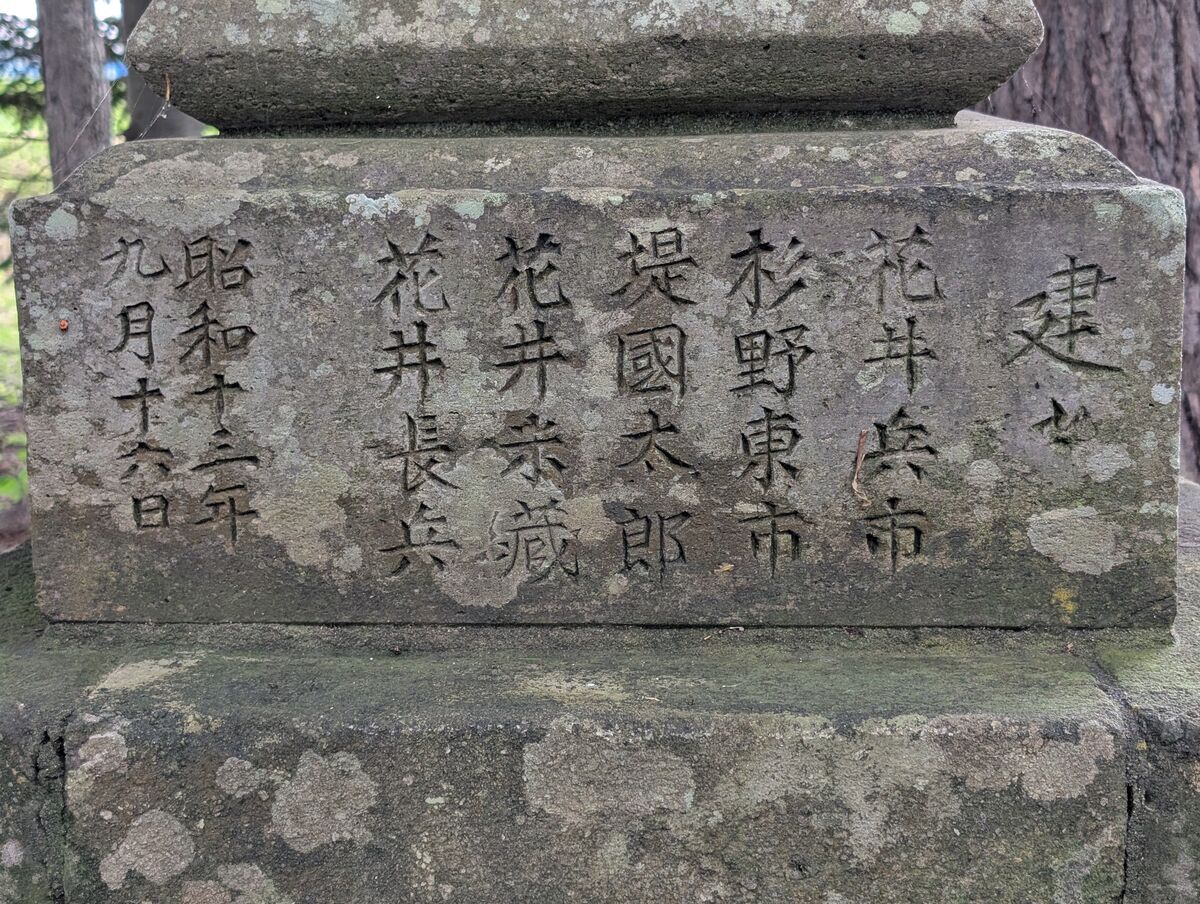 建
花井兵市
杉野東市
堤國太郎
花井米藏
花井長兵
昭和十三年
九月十六日